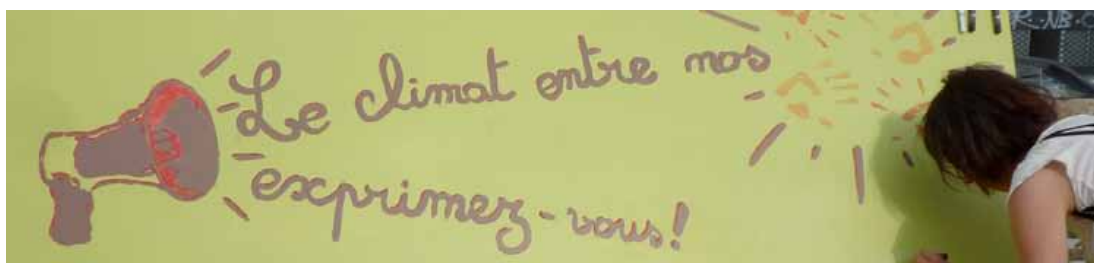 Le climat entre nos
exprimez-vous!